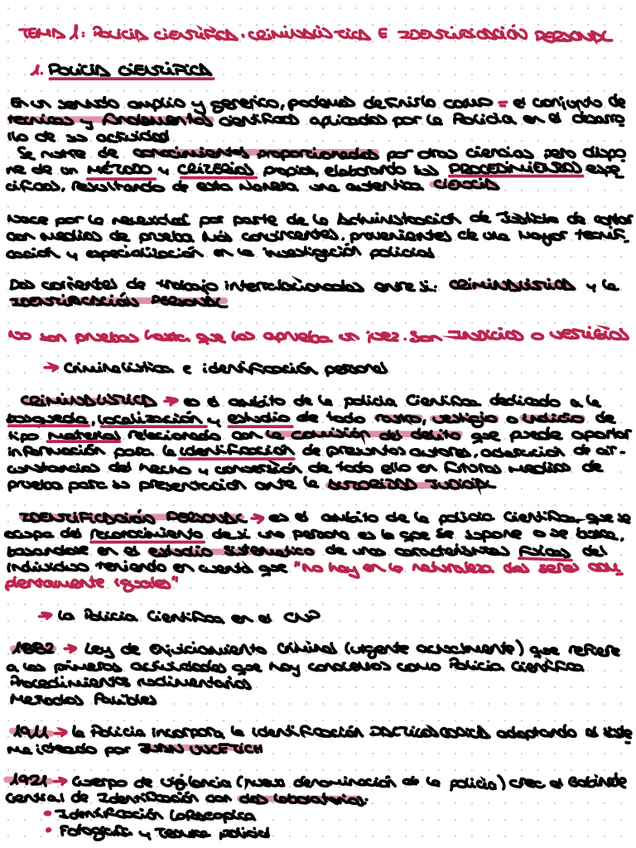 TEMA 1: POLICIA CIENTÍFICA. CRIMINALÍSTICA E IDENTIFICACIÓN PERSONAL
1. POLICIA CIENTÍFICA
En un sentido amplio y generico, podemos definirlo como = el conjunto de
tecnicas y fundamentos científicos aplicados por la Policia en el desarro
llo de su actividad
Se nutre de conocimientos proporcionados por otras ciencias pero dispo
ne de un METODO y CRITERIOS propios, elaborando sus PROCEDIMIENTOS espe
cificos, resultando de esta manera una autentica CIENCIA
Nace por la necesidad por parte de la Administración de Justicia de contar
con medios de prueba más convincentes, provenientes de una mayor tecnifi
cación y especialización en la investigación policial
Dos corrientes de trabajo interrelacionadas entre si: CRIMINALISTICA y la
IDENTIFICACIÓN PERSONAL
No son pruebas hasta que las aprueba un juez. Son INDICIOS o VESTIGIOS
→ Criminalistica e identificación personal
CRIMINALISTICA → es el ambito de la policia Científica dedicado a la
busqueda, localización y estudio de todo rastro, vestigio o indicio de
tipo material relacionado con la comisión del delito que puede aportar
información para la identificación de presuntos autores, aclaración de cir-
cunstancias del hecho y conversión de todo ello en futuros medios de
prueba para su presentación ante la AUTORIDAD JUDICIAL
IDENTIFICACIÓN PERSONAL → es el ambito de la policia Científica que se
ocupa del reconocimiento de si una persona es la que se supone o se busca,
basandose en el estudio sistematico de unas caracteristicas fisicas del
individuo teniendo en cuenta que "no hay en la naturaleza dos seres com
pletamente iguales"
→ La Policia Científica en el CNP
1882 → Ley de Enjuiciamiento Criminal (vigente actualmente) que refiere
a las primeras actividades que hoy conocemos como Policia Científica
Procedimientos rudimentarios
Metodos Falibles
1911 → la Policia incorpora la identificación DACTILOSCOPICA adoptando el siste
ma ideado por JUAN VUCETICH
1921 → Cuerpo de Vigilancia (nueva denominación de la policia) crea el Gabinete
Central de Identificación con dos laboratorios:
• Identificación Lofoscopica
• Fotografia y Tecnica policial